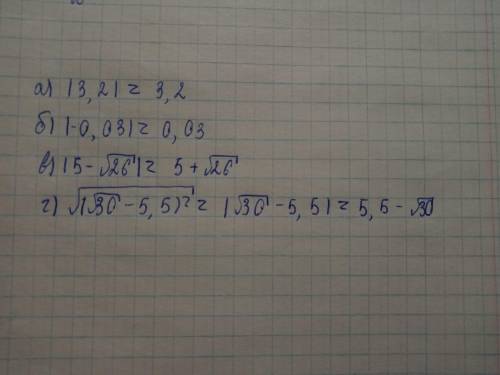 а) |3,2| = 3,2
б) |-0,03| = 0,03
в) |5-√26| = 5+√26
г) √(√30-5,5)² = |√30-5,5| = 5,5-√30